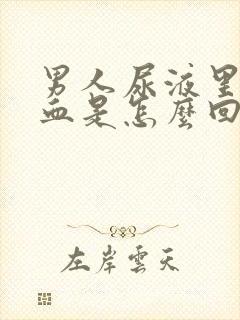 男人尿液里
血是怎麼回
左岸雲天